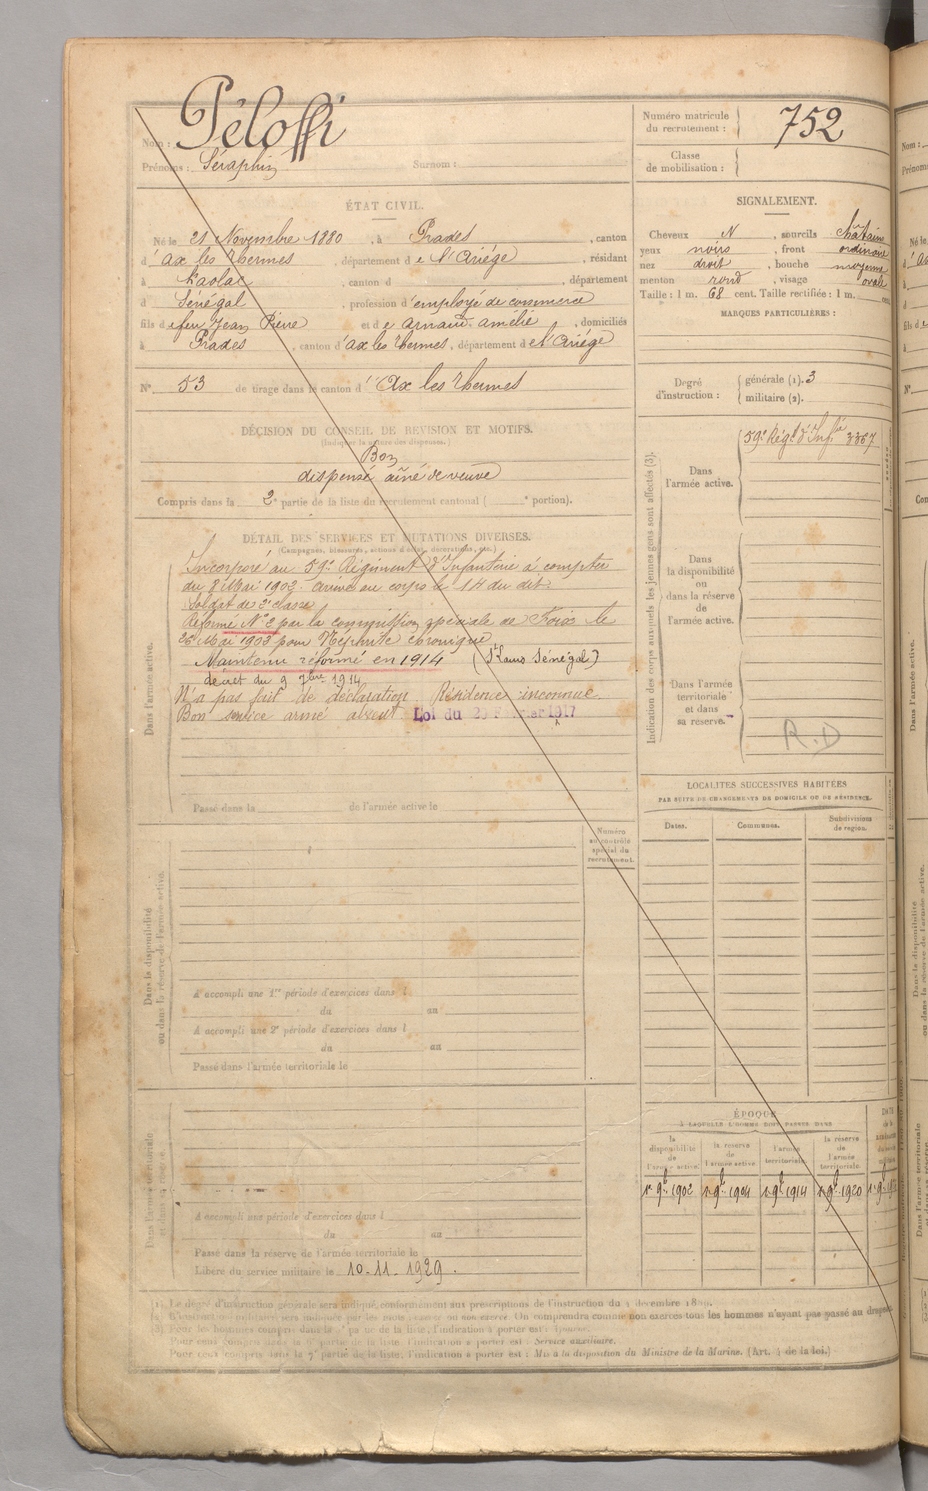 Nom : Péloffi
Prénoms : Séraphin Surnom :
Numéro matricule
du recrutement : 752
Classe
de mobilisation :
ÉTAT CIVIL.
Né le 21 Novembre 1880, à Prades, canton
d'Ax les Thermes, département de l'Ariége, résidant
à Kaolac, canton d , département
d Sénégal, profession d'employé de commerce
fils de feu Jean Pierre et de arnaud amélie, domiciliés
à Prades, canton d'ax les thermes, département de l'Ariége
N° 53 de tirage dans le canton d'Ax les Thermes
DÉCISION DU CONSEIL DE REVISION ET MOTIFS.
(Indiquer la nature des dispenses.)
Bon
dispensé aîné de veuve
Compris dans la 2e partie de la liste du recrutement cantonal ( e portion).
DÉTAIL DES SERVICES ET MUTATIONS DIVERSES.
(Campagnes, blessures, actions d'éclat, décorations, etc.)
Dans l'armée active.
Incorporé au 59e Régiment d'Infanterie à compter
du 8 Mai 1902. arrivé au corps le 14 du dit.
Soldat de 2e classe
Réformé N° 2 par la commission spéciale de Foix le
26 Mai 1903 pour Néphrite chronique
Maintenu réformé en 1914 (St Louis Sénégal)
décret du 9 7bre 1914
N'a pas fait de déclaration Résidence inconnue
Bon service armé absent Loi du 20 Février 1917
Passé dans la de l'armée active le
Numéro
au contrôle
spécial du
recrutement.
Dans la disponibilité
ou dans la réserve de l'armée active.
A accompli une 1re période d'exercices dans l
du au
A accompli une 2e période d'exercices dans l
du au
Passé dans l'armée territoriale le
Dans l'armée territoriale
et dans sa réserve.
A accompli une période d'exercices dans l
du au
Passé dans la réserve de l'armée territoriale le
Libéré du service militaire le 10-11-1929.
SIGNALEMENT.
Cheveux N, sourcils châtains
yeux noirs, front ordinaire
nez droit, bouche moyenne
menton rond, visage ovale
Taille : 1 m. 68 cent. Taille rectifiée : 1 m.
MARQUES PARTICULIÈRES :
Degré
d'instruction :
générale (1). 3
militaire (2).
Indication des corps auxquels les jeunes gens sont affectés (3).
Dans
l'armée active.
59e Régt d'Infie 3367
Dans
la disponibilité
ou
dans la réserve
de
l'armée active.
Dans l'armée
territoriale
et dans
sa réserve.
R.D
LOCALITÉS SUCCESSIVES HABITÉES
PAR SUITE DE CHANGEMENTS DE DOMICILE OU DE RÉSIDENCE.
Dates. Communes. Subdivisions
de région.
ÉPOQUE
À LAQUELLE L'HOMME DOIT PASSER DANS
la
disponibilité
de
l'armée active.
la réserve
de
l'armée active
l'armée
territoriale.
la réserve
de
l'armée
territoriale.
1er 9bre 1902 1er 9bre 1904 1er 9bre 1914 1er 9bre 1920
(1) Le degré d'instruction générale sera indiqué, conformément aux prescriptions de l'instruction du 4 décembre 1889.
(2) L'instruction militaire sera indiquée par les mots exercé ou non exercé. On comprendra comme non exercés tous les hommes n'ayant pas passé au drapeau
(3) Pour les hommes compris dans la
Pour ceux compris dans la 5e partie de la liste, l'indication à porter est : Service auxiliaire.
Pour ceux compris dans la 7e partie de la liste, l'indication à porter est : Mis à la disposition du Ministre de la Marine. (Art. 4 de la loi.)